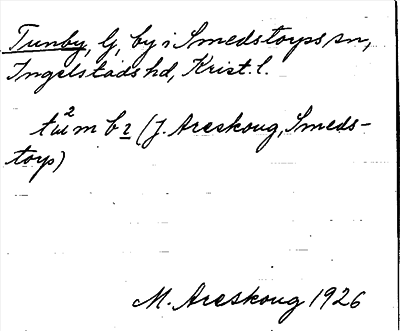 Tunby, lj, by i Smedstorps sn,
Ingelstads hd, Krist. l.
(J. Areskoug, Smeds-
torp)
M. Areskoug 1926